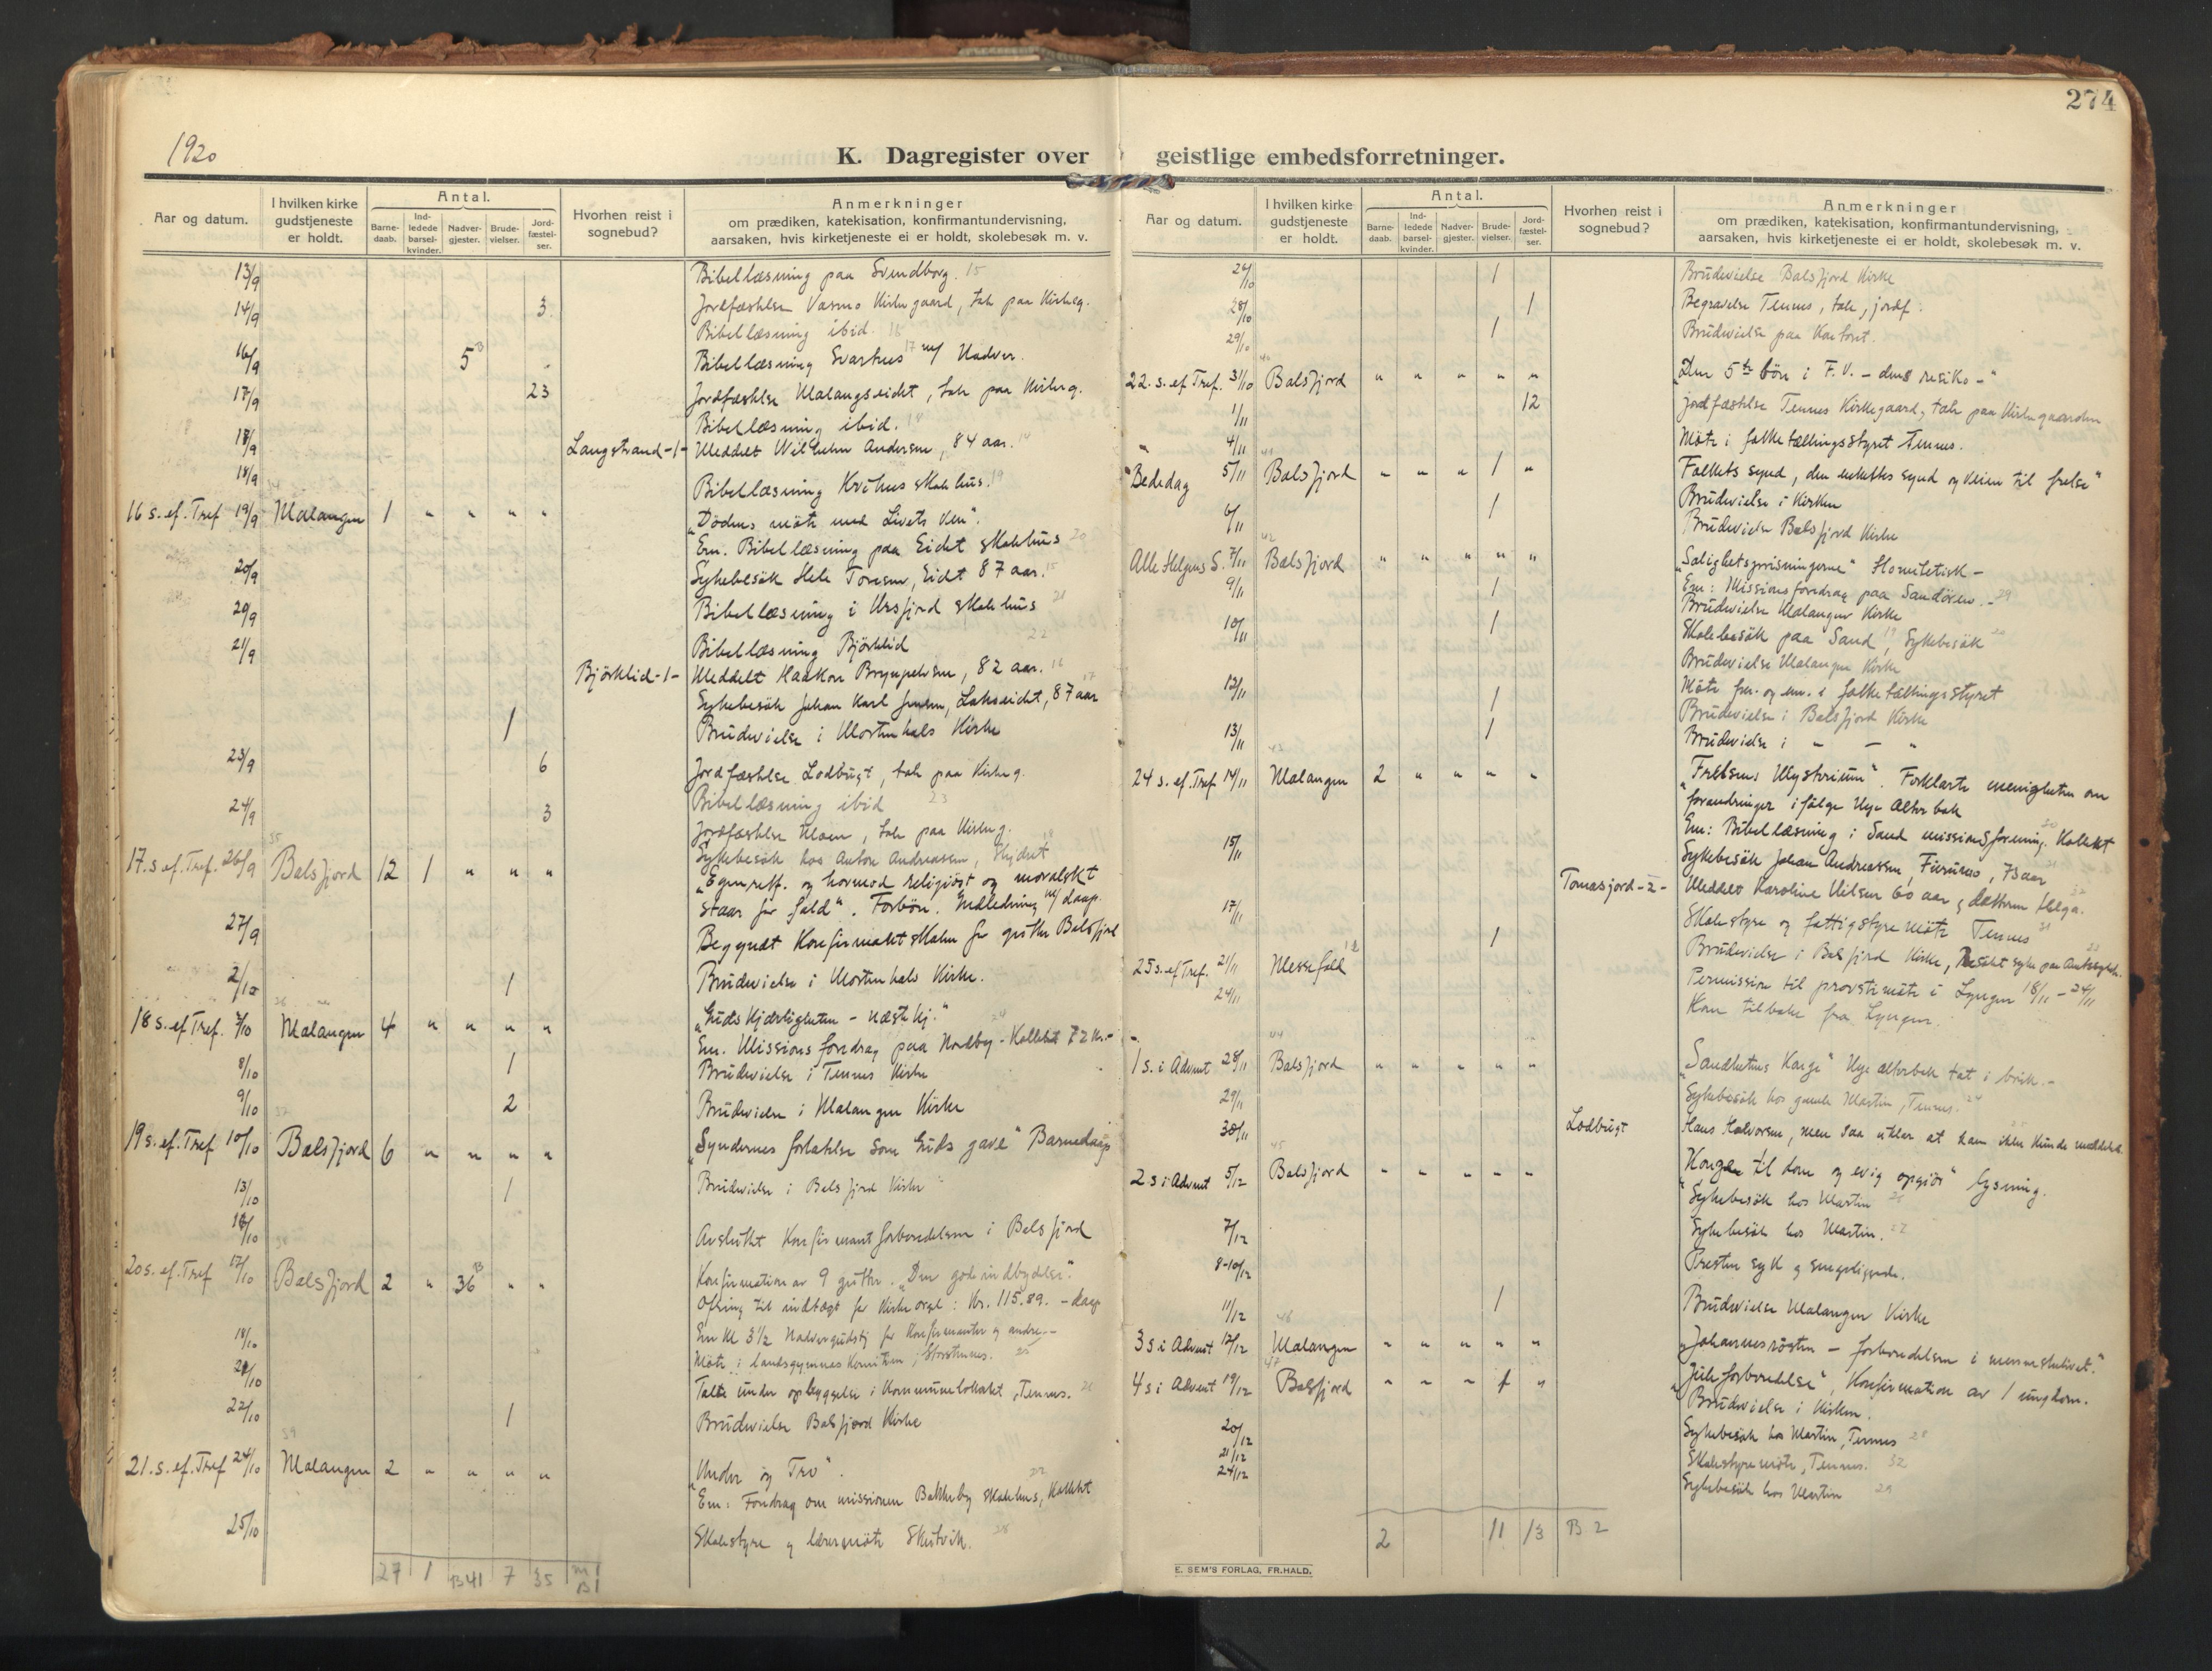 274
1920
K. Dagregister over geistlige embedsforretninger.
Aar og datum. I hvilken kirke gudstjeneste er holdt. Antal. Barne-daab. Ind-ledede barsel-kvinder. Nadver-gjester. Brude-vielser. Jord-fæstel-ser. Hvorhen reist i sognebud? Anmerkninger om prædiken, katekisation, konfirmantundervisning, aarsaken, hvis kirketjeneste ei er holdt, skolebesøk m. v.
13/9 Bibellæsning paa Svendborg. 15
14/9 3 Jordfæstelse Kirkegaard, tale paa Kirkeg.
Bibellæsning ibid. 16
16/9 5 B Bibellæsning Svartnes 17 m/ Nadver.
17/9 23 Jordfæstelse Malangseidet, tale paa Kirkeg.
Bibellæsning ibid.
18/9 Langstrand -1- Meddelt Wilhelm Andersen, 84 aar. 14
18/9 Bibellæsning skolehus. 19
16 s. ef. Tref 19/9 Malangen 1 " " " " "Dödens möte med Livets
Em. Bibellæsning paa Eidet skolehus 20
20/9 Sykebesök Toresen, Eidet 87 aar. 15
20/9 Bibellæsning i skolehus 21
21/9 Bibellæsning Björklid 22
Björklid -1- Meddelt Haakon 82 aar. 16
Sykebesök Johan Karl Jensen, 87 aar 17
1 Brudevielse i Mortenhals Kirke
23/9 6 Jordfæstelse Lodbugt, tale paa Kirkeg.
Bibellæsning ibid 23
24/9 3 Jordfæstelse Moen, tale paa Kirkeg.
Sykebesök hos Anton Andreassen,
17. s. ef. Tref. 26/9 35 Balsfjord 12 1 " " " "Egenretf. og hovmod religiöst og moralskt
staar for fald". Forbön. Indledning m/ daap.
27/9 Begyndt Konfirmantskolen for gutter Balsfjord
2/10 1 Brudevielse i Mortenhals Kirke.
18 s. ef Tref. 3/10 36 Malangen 4 " " " " "Guds Kjærligheten - næstkj."
Em. Missionsforedrag paa Nordby - Kollekt 72 Kr. - 24
8/10 1 Brudevielse i Tennes Kirke
9/10 2 Brudevielse i Malangen Kirke
19 s. ef. Tref 10/10 37 Balsfjord 6 " " " " "Syndernes forlatelse som Guds gave" Barnedaap
13/10 1 Brudevielse i Balsfjord Kirke
16/10 Avsluttet Konfirmantforberedelsen i Balsfjord
20 s. ef. Tref 17/10 38 Balsfjord 2 " 36 B " " Konfirmation av 9 gutter. "Den gode indbydelse".
Ofring til indtægt for Kirkeorgel: Kr. 115.89. - daap
Em Kl 3 1/2 Nadvergudstj for Konfirmanter og andre -
18/10 Möte i landsgymnas Komiteen, Storsteinnes. 25
20/10 Talte under opbyggelse i Kommunelokalet, Tennes. 26
22/10 1 Brudevielse Balsfjord Kirke
21. s. ef. Tref 24/10 39 Malangen 2 " " " " "Under og Tro".
Em: Foredrag om missionen Bakkeby skolehus, Kollekt 27
25/10 Skolestyre og lærermöte Skutvik. 28
27 1 B41 7 35 M 1 B 1
Aar og datum. I hvilken kirke gudstjeneste er holdt. Antal. Barne-daab. Ind-ledede barsel-kvinder. Nadver-gjester. Brude-vielser. Jord-fæstel-ser. Hvorhen reist i sognebud? Anmerkninger om prædiken, katekisation, konfirmantundervisning, aarsaken, hvis kirketjeneste ei er holdt, skolebesøk m. v.
26/10 1 Brudevielse Balsfjord Kirke
28/10 1 Begravelse Tennes, tale, jordf.
29/10 1 Brudevielse paa Kontoret.
22. s. ef Tref. 31/10 40 Balsfjord " " " " " "Den 5te bön i F. V. - dens resiko -"
1/11 12 Jordfæstelse Tennes Kirkegaard, tale paa Kirkegaarden
4/11 Möte i folketællingsstyret Tennes.
Bededag 5/11 41 Balsfjord " " " 1 " "Folkets synd, den enkeltes synd og veien til frelse"
Brudevielse i Kirken
6/11 1 Brudevielse Balsfjord Kirke
Alle Helgens S. 7/11 42 Balsfjord " " " " " "Salighetsprisningerne" Homiletisk -
Em: Missionsforedrag paa Sandören. - 29
9/11 1 Brudevielse Malangen Kirke
10/11 1 Skolebesök paa Sand, 19 Sykebesök 20
Brudevielse Malangen Kirke
12/11 1 Möte for. og em. i folketællingsstyret
Brudevielse i Balsfjord Kirke
13/11 1 Brudevielse i " - "
24 s. ef. Tref 14/11 43 Malangen 2 " " " " "Frelsens Mysterium". Forklarte menigheten om
forandringer ifölge Nye Alterbok
Em: Bibellæsning i Sand missionsforening. Kollekt 30
15/11 Sykebesök Johan Andreassen, 73 aar 21
Tomasjord -2- Meddelt Karoline Nilsen 60 aar og datteren Helga.
17/11 Skolestyre og fattigstyremöte Tennes 31
1 Brudevielse i Balsfjord Kirke, Besökt syke paa
25 s. ef Tref. 21/11 Messefald 12 Permission til provstemöte i Lyngen 18/11 - 24/11
24/11 Kom tilbake fra Lyngen.
1 s. i Advent 28/11 44 Balsfjord " " " " " "Sandhetens Konge" Nye alterbok tat i bruk. -
29/11 Sykebesök hos gamle Martin, Tennes. 24
30/11 Lodbugt Hans Halvorsen, men saa uklar at ham ikke Kunde meddeles. 25
2 s i Advent 5/12 45 Balsfjord " " " " " "Kongen til dom og evig opgjör" lysning.
Sykebesök hos Martin 26
7/12 Sykebesök hos Martin. 27
8-10/12 Presten syk og sengeliggende.
11/12 1 Brudevielse Malangen Kirke
3 s i Advent 12/12 46 Malangen " " " " " "Johannesrösten - forberedelsen i menneskelivet."
4 s i Advent 19/12 47 Balsfjord " " " 1 " "Juleforberedelse", Konfirmation av 1 ungdom.
Brudevielse i Kirken.
20/12 Sykebesök hos Martin, Tennes 28
21/12 Skolestyremöte, Tennes. 32
24/12 Sykebesök hos Martin 29
2 11 13 B 2
E. SEM'S FORLAG, FR.HALD.